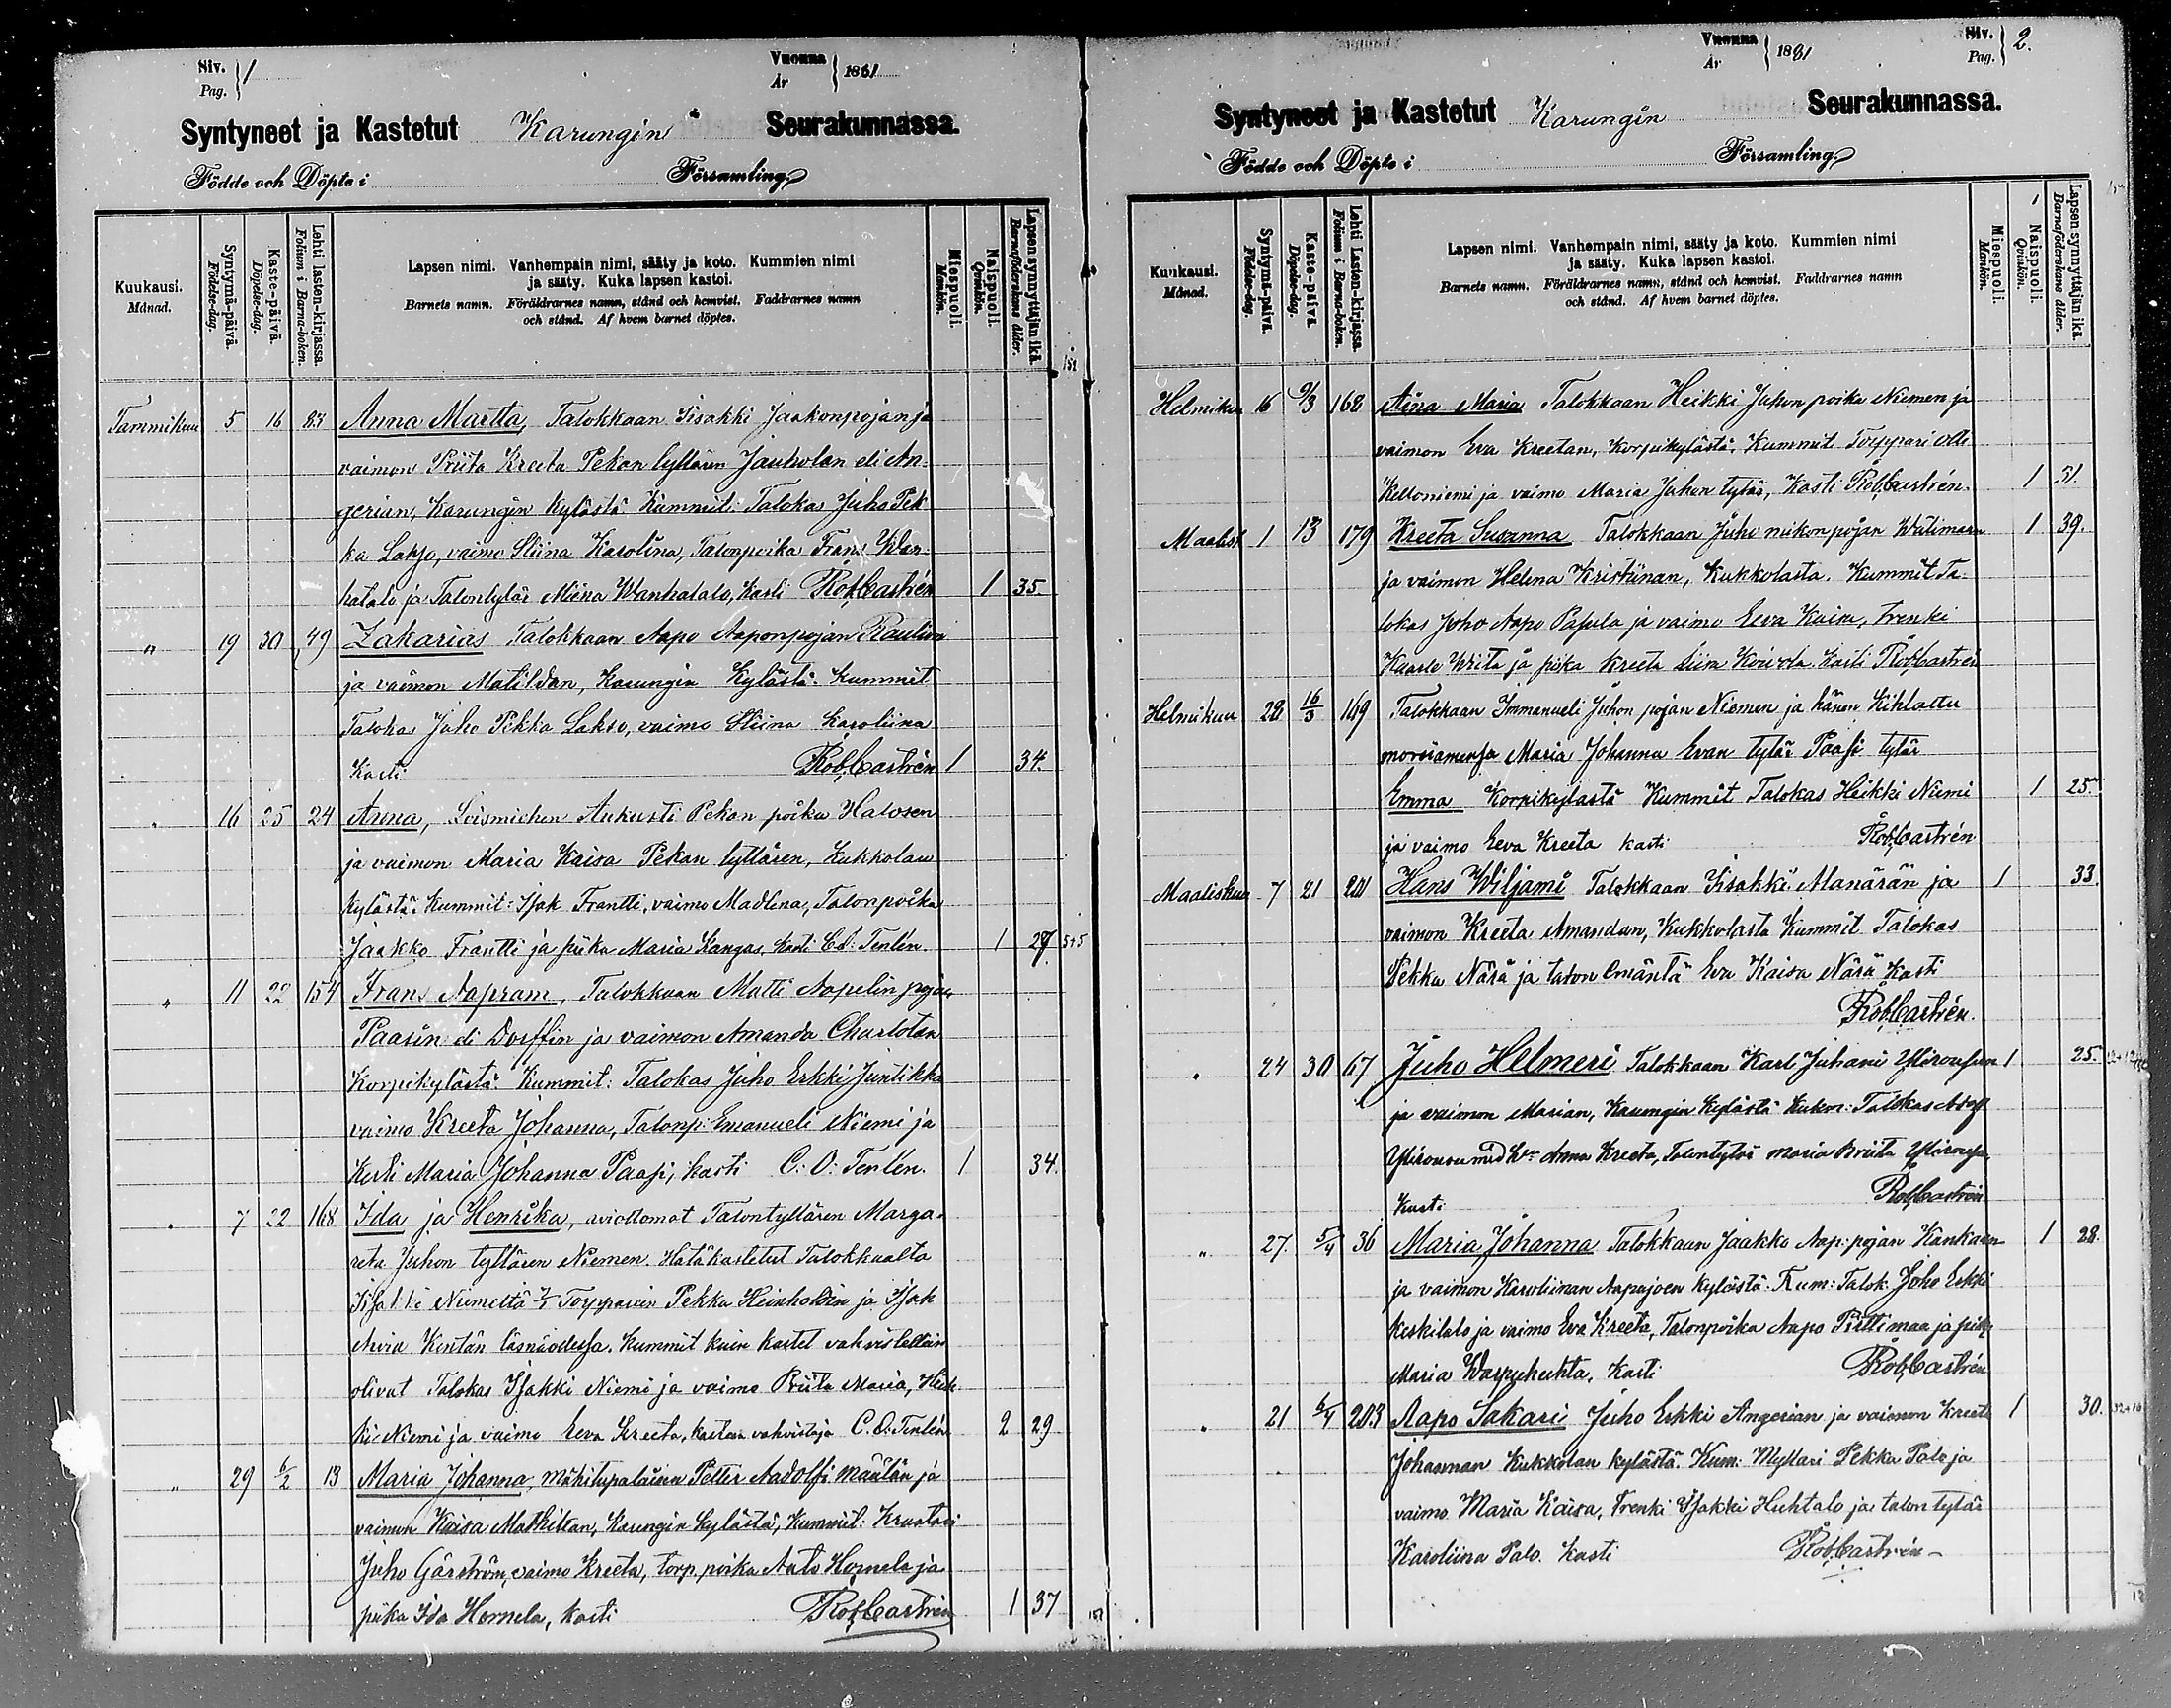 Siv. Pag. } 1
Vuonna År } 1881
Syntyneet ja Kastetut Karungin Seurakunnassa.
Födde och Döpte i Församling
Kuukausi. Månad.
Syntymä-päivä. Födelse-dag.
Kaste-päivä. Döpelse-dag.
Lehti lasten-kirjassa. Folium i Barna-boken.
Lapsen nimi. Vanhempain nimi, sääty ja koto. Kummien nimi
ja sääty. Kuka lapsen kastoi.
Barnets namn. Föräldrarnes namn, stånd och hemvist. Faddrarnes namn
och stånd. Af hvem barnet döptes.
Miespuoli. Mankön.
Naispuoli. Qvinkön.
Lapsen synnyttäjän ikä. Barnaföderskans ålder.
Tammikuu 5 16 83 Anna Martta, Talokkaan Iisakki Jaakonpojan ja
vaimon Priita Kreeta Pekan tyttären Jauholan eli An-
gerian, Karungin Kylästä Kummit: Talokas Juho Pek
ka Lakso, vaimo Stiina Karolina, Talonpoika Frans Wan-
hatalo ja Talontytär Miina Wanhatalo, Kasti Rob. Castrén 1 35.
" 19 30 49 Zakarias Talokkaan Aapo Aaponpojan Raution
ja vaimon Matildan, Karungin Kylästä. Kummit
Talokas Juho Pekka Lakso, vaimo Stiina Karoliina
Kasti Rob. Castrén 1 34.
" 16 25 24 Anna, Loismiehen Aukusti Pekan poika Halosen
ja vaimon Maria Kaisa Pekan tyttären, Kukkolan
kylästä. Kummit: Isak Frantti, vaimo Madlena, Talonpoika
Jaakko Frantti ja piika Maria Kangas. Kasti C.O. Tenlén. 1 27. 5+5
" 11 22 154 Frans Aapram, Talokkaan Matti Aapelin pojan
Paasin eli Dorffin ja vaimon Amanda Charlotan
Korpikylästä. Kummit: Talokas Juho Erkki Juntikka
vaimo Kreeta Johanna, Talonp: Emanueli Niemi ja
Maria Johanna Paasi, kasti C: O: Tenlén. 1 34.
" 7 22 168 Ida ja Henrika, aviottomat Talontyttären Marga-
reta Juhon tyttären Niemen. Hätäkastetut Talokkaalta
Niemeltä 7/1 Torpparein Pekka Heinholdin ja Isak
Kentän läsnäollessa. Kummit kuin kastet vahvistettiin
olivat Talokas Isakki Niemi ja vaimo Priita Maria, Heik
ki Niemi ja vaimo Eeva Kreeta, kasteen vahvistaja C. O. Tenlén 2 29
" 29 6/2 13 Maria Johanna, Mäkitupalaisen Petter Aadolfi Määtän ja
vaimon Kaisa Mathildan, Karungin kylästä, Kummit:
Juho Gårström, vaimo Kreeta, torp. poika Hornela ja
piika Ida Hornela, Kasti Rob. Castrén 1 37
Siv. Pag. } 2.
Vuonna År } 1881
Syntyneet ja Kastetut Karungin Seurakunnassa.
Födde och Döpte i Församling
Kuukausi. Månad.
Syntymä-päivä. Födelse-dag.
Kaste-päivä. Döpelse-dag.
Lehti Lasten-kirjassa. Folium i Barna-boken.
Lapsen nimi. Vanhempain nimi, sääty ja koto. Kummien nimi
ja sääty. Kuka lapsen kastoi.
Barnets namn. Föräldrarnes namn, stånd och hemvist. Faddrarnes namn
och stånd. Af hvem barnet döptes.
Miespuoli. Mankön.
Naispuoli. Qvinkön.
Lapsen synnyttäjän ikä. Barnaföderskans ålder.
Helmikuu 16 168 Aina Maria Talokkaan Heikki Juhon poika Niemen ja
vaimon Eva Kreetan, Korpikylästä. Kummit Torppari Olli
Kelloniemi ja vaimo Maria Juhon tytär, Kasti Rob. Castrén. 1 31.
Maalisk 1 13 179 Kreeta Susanna Talokkaan Juho Mikonpojan Wälimaan 1 39.
ja vaimon Helena Kristiinan, Kukkolasta. Kummit Ta-
lokas Juho Aapo Papula ja vaimo Eeva Kaisa, Frenki
Kaarle ja piika Kreeta Liisa Koivola. Kasti Rob. Castrén
Helmikuu 28 16/3 149 Talokkaan Immanueli Juhon pojan Niemen ja hänen Kihlattu
morsiamensa Maria Johanna Evan tytär Paasi tytär
Emma Korpikylästä Kummit Talokas Heikki Niemi 1 25.
ja vaimo Eeva Kreeta kasti Rob. Castrén
Maaliskuu 7 21 201 Hans Wiljami Talokkaan Iisakki Manärän ja 1 33.
vaimon Kreeta Amandan, Kukkolasta Kummit Talokas
Pekka Närä ja talon Emäntä Eva Kaisa Närä Kasti
Rob. Castrén.
" 24 30 67 Juho Helmeri Talokkaan Karl Juhani Ylirousun 1 25.
ja vaimon Marian, Karungin Kylästä Kumm: Talokas Adolf
Ylirousu Anna Kreeta, Talontytär Maria Briita Ylirousu
Kasti Rob. Castrén
" 27. 5/4 36 Maria Johanna Talokkaan Jaakko Aap: pojan Kankaan 1 28.
ja vaimon Karoliinan Aapajoen Kylästä. Kum: Talok. Joho Erkki
Keskitalo ja vaimo Eva Kreeta, Talonpoika Aapo Pirttimaa ja piika
Maria Waspuhuhta, Kasti Rob. Castrén
" 21 6/4 203 Aapo Sakari Juho Erkki Angerian ja vaimon Kreeta 1 30.
Johannan Kukkolan kylästä. Kum: Myllari Pekka Palo ja
vaimo Maria Kaisa, Frenki Isakki Huhtalo ja talon tytär
Karoliina Palo. Kasti Rob. Castrén